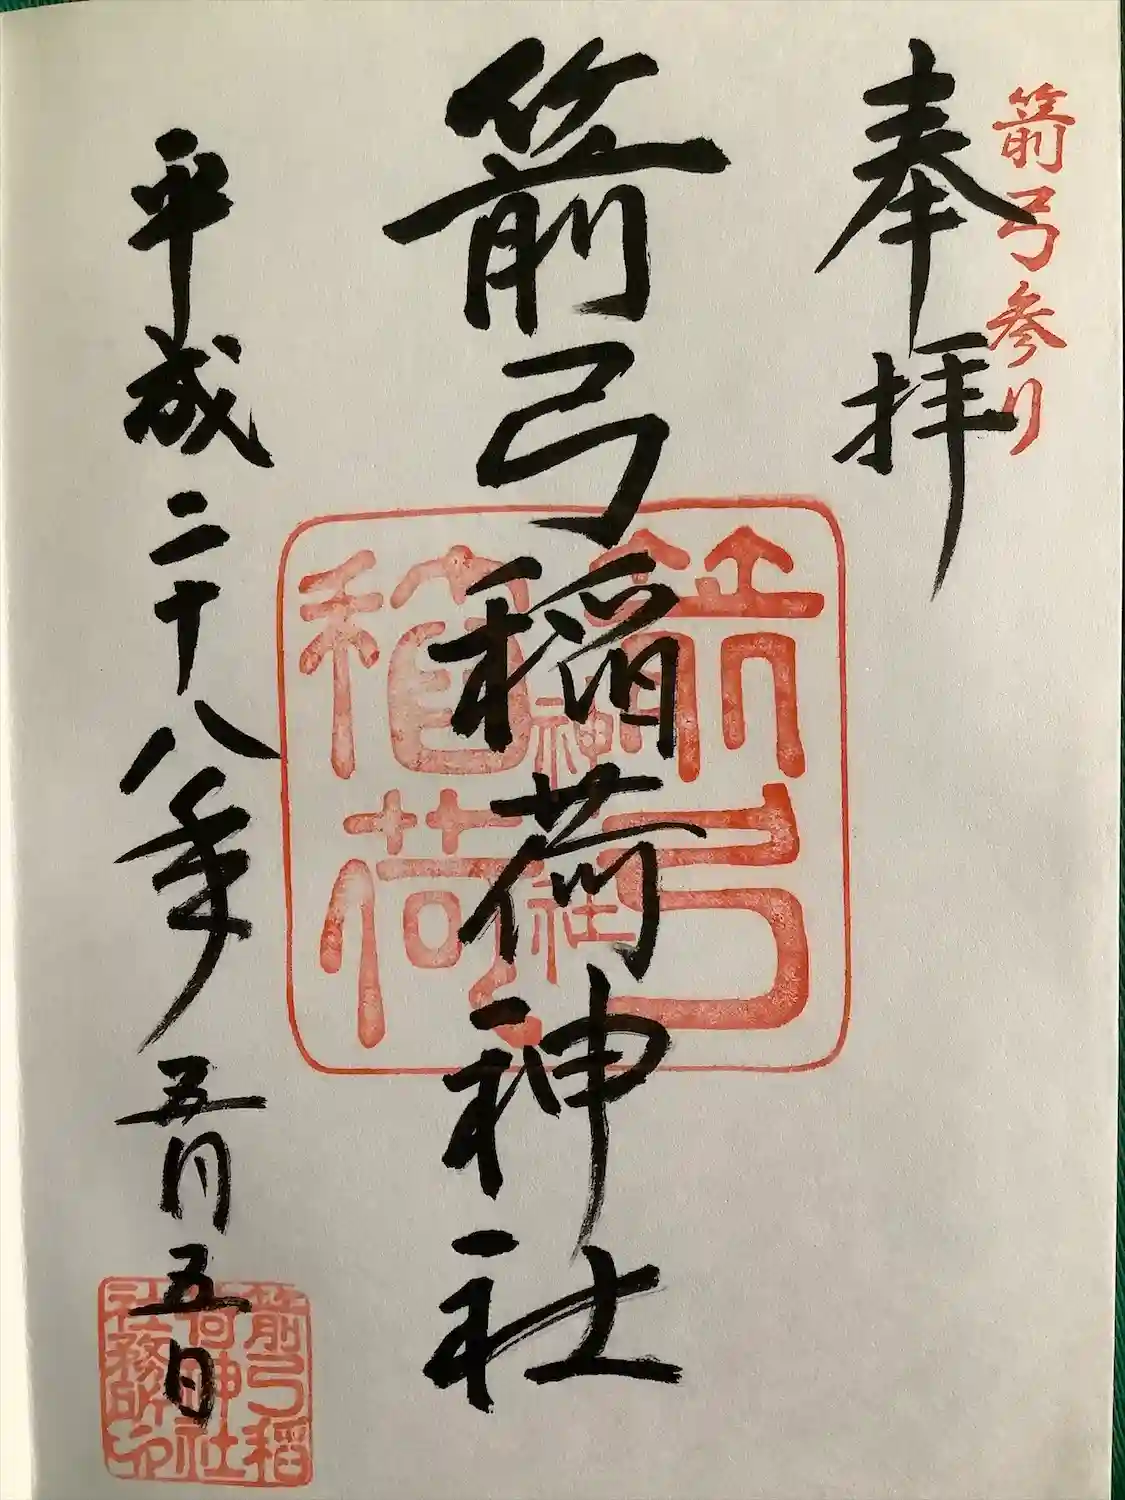 箭弓参り
奉拝
箭弓稲荷神社
平成二十八年五月五日
箭弓
稲荷
神社
箭弓稲
荷神社
社務所印